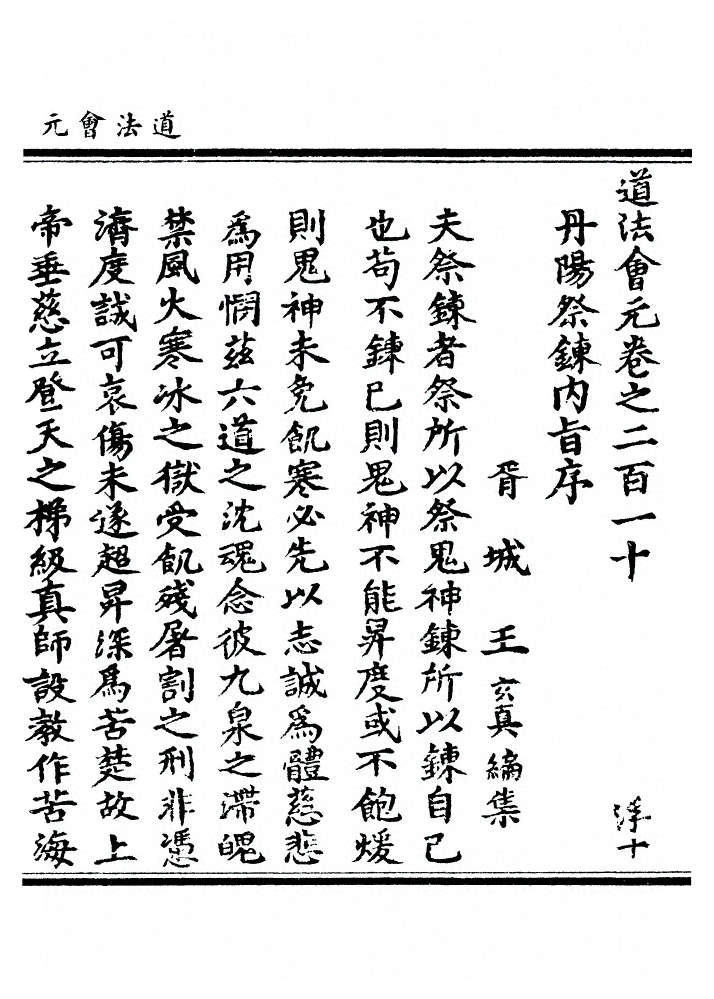 道法會元
道法會元卷之二百一十 浮十
丹陽祭鍊内旨序
胥城王玄真編集
夫祭鍊者祭所以祭鬼神鍊所以鍊自己
也苟不鍊己則鬼神不能昇度或不飽煖
則鬼神未免飢寒必先以志誠爲體慈悲
爲用憫茲六道之沈魂念彼九泉之滯魄
禁風火寒冰之獄受飢殘屠割之刑非憑
濟度誠可哀傷未遂超昇深爲苦楚故上
帝垂慈立登天之梯級真師設教作苦海